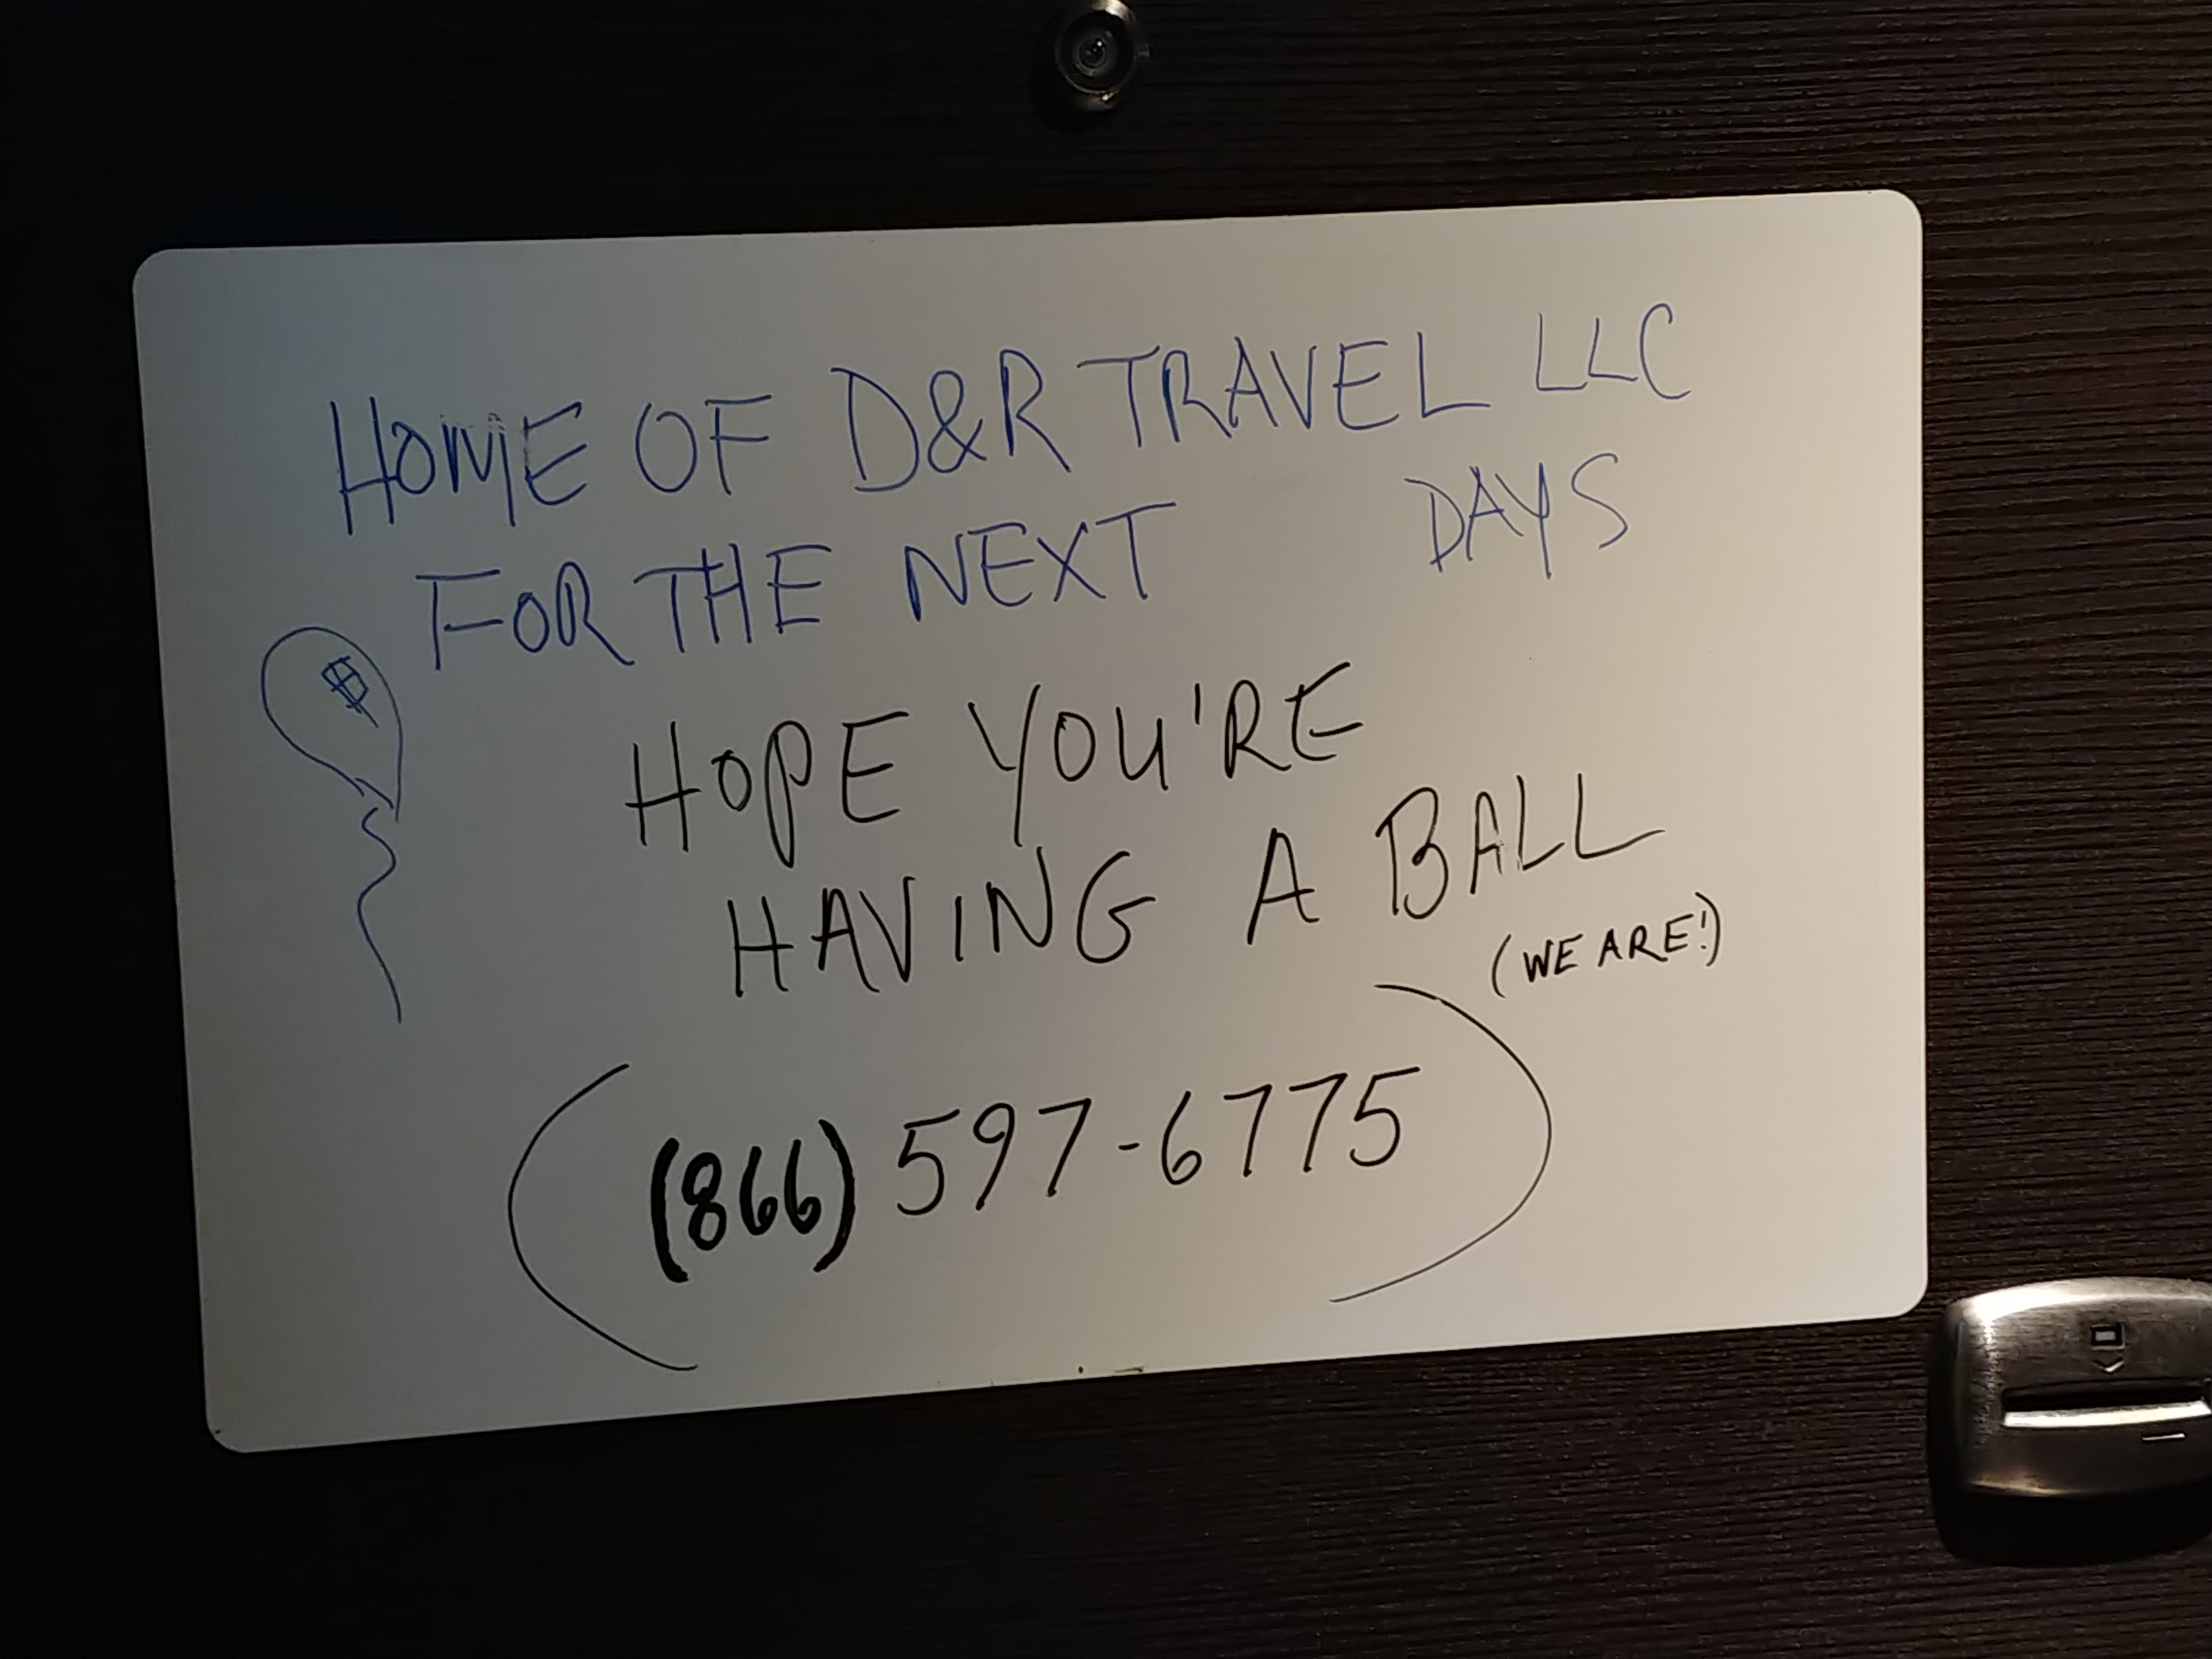 HOME OF D&R TRAVEL LLC
FOR THE NEXT DAYS
HOPE YOU'RE
HAVING A BALL
(WE ARE!)
(866) 597-6775